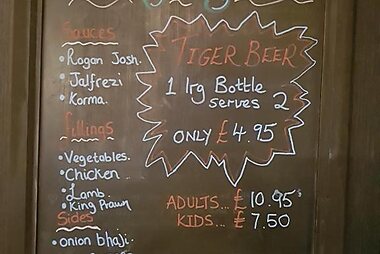 Sauces
• Rogan Josh.
• Jalfrezi
• Korma.
fillings
• Vegetables.
• Chicken
• Lamb.
• King Prawn
Sides
• onion bhaji.
TIGER BEER
1 lrg Bottle
serves 2
ONLY £4.95
ADULTS... £ 10.95
KIDS... £ 7.50